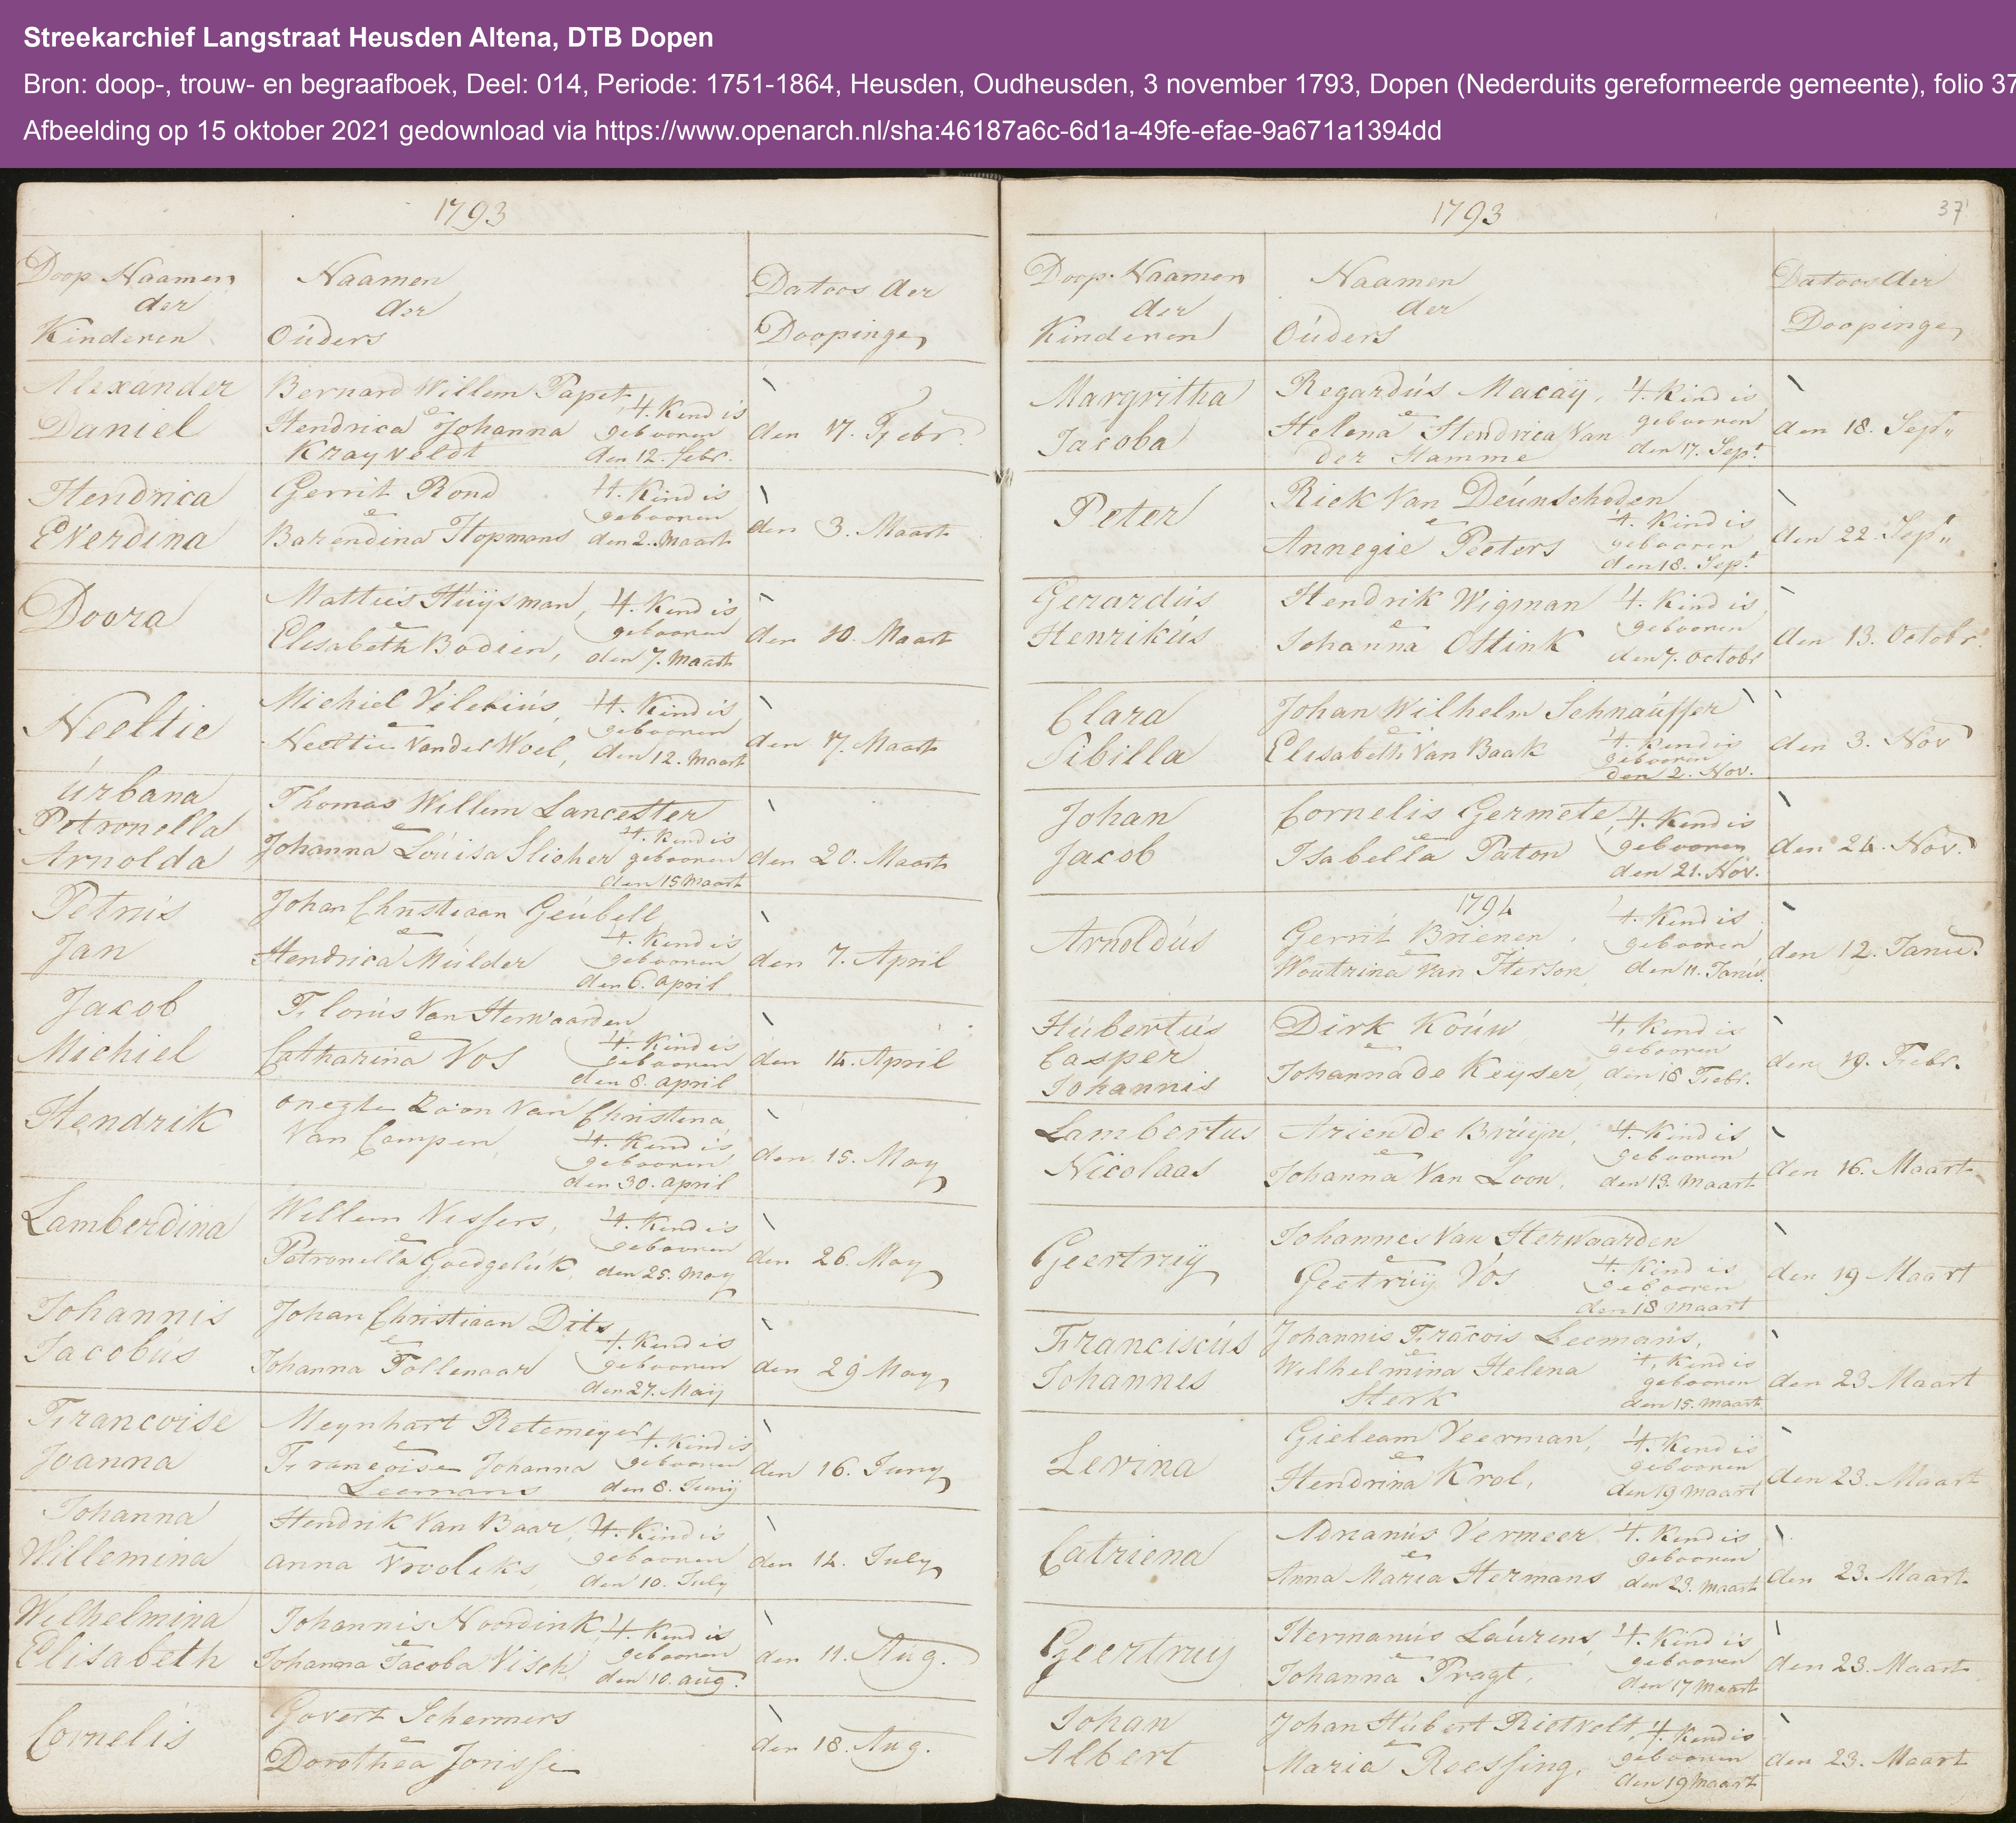 Streekarchief Langstraat Heusden Altena, DTB Dopen
Bron: doop-, trouw- en begraafboek, Deel: 014, Periode: 1751-1864, Heusden, Oudheusden, 3 november 1793, Dopen (Nederduits gereformeerde gemeente), folio 37
Afbeelding op 15 oktober 2021 gedownload via https://www.openarch.nl/sha:46187a6c-6d1a-49fe-efae-9a671a1394dd
1793
Doop Naamen
der
Kinderen
Naamen
der
Oúders
Datoos der
Doopinge
Alexander
Daniel
Bernard Willem Papet
e
Hendrica Johanna
Krayveldt
't. Kend is
gebooren
den 12. febr.
den 17. Febr.
Hendrica
Everdina
Gerrit Rond
e
Barendina Hopmans
't. Kind is
gebooren
den 2. Maart
den 3. Maart
Doora
Matteis Húijsman,
e
Elisabeth Bodien,
't. Kend is
gebooren
den 7. Maart
den 10. Maart
Neeltie
Michiel Vilebiús,
e
Neeltie Van del Woel,
't. Kind is
gebooren
den 12. Maart
den 17. Maart
úrbana
Petronella
Arnolda
Thomas Willem Lancester
e
Johanna Loúisa Slicher
't. Kend is
gebooren
den 15 Maart
den 20. Maart
Petrus
Jan
Johan Christiaan Geúbell
e
Hendrica Múlder
't. Kend is
gebooren
den 6. April
den 7. April
Jacob
Michiel
Florús Van Herwaarden
e
Catharina Vos
't. Kend is
gebooren
den 8. April
den 14. April
Hendrik
onegte Zoon Van Christena
Van Campen
't. Kend is
gebooren
den 30. April
den 15. May
Lamberdina
Willem Vissers,
e
Petronella Goedgelúk,
't. Kend is
gebooren
den 25. May
den 26. May
Johannis
Jacobús
Johan Christiaan Dits
e
Johanna Tollenaar
't. Kend is
gebooren
den 27. Maij
den 29 May
Francoise
Joanna
Meynhart Retemeyer
e
Francoise Johanna
Leemans
't. Kind is
gebooren
den 8. Junij
den 16. Juny
Johanna
Willemina
Hendrik Van Baar,
e
anna Vrooleks,
't. Kind is
gebooren
den 10. July
den 14. July
Wilhelmina
Elisabeth
Johannis Noordink,
e
Johanna Jacoba Visch
't. Kend is
gebooren
den 10. aug.
den 11. Aug.
Cornelis
Govert Schermers
e
Dorothea Jorisse
den 18. Aug.
1793
37
Doop Naamen
der
Kinderen
Naamen
der
Oúders
Datoos der
Doopinge
Margritha
Jacoba
Regardús Macaij,
e
Helena Hendrica Van
der Hamme
't. Kind is
gebooren
den 17. Sept.
den 18. Sept.
Peter
Riek Van Deúnschoden
e
Annegie Peeters
't. Kind is
gebooren
den 18. Sept.
den 22. Sept.
Gerardús
Henrikús
Hendrik Wigman
e
Johanna Ottink
't. Kind is
gebooren
den 7. Octobr
den 13. Octobr.
Clara
Sibilla
Johan Wilhelm Schnaúffer
e
Elisabeth Van Baak
't. Kend is
gebooren
den 2. Nov.
den 3. Nov
Johan
Jacob
Cornelis Germete,
e
Isabella Paton
't. Kend is
gebooren
den 21. Nov.
den 24. Nov.
1794
Arnoldús
Gerrit Brienen,
e
Woutrina Van Iterson
't. Kend is
gebooren
den 11. Janú.
den 12. Janú.
Húbertús
Casper
Johannis
Dirk Koúw
e
Johanna de Keyser
't. Kend is
gebooren
den 18 Febr.
den 19. Febr.
Lambertus
Nicolaas
Arien de Brúijn,
e
Johanna Van Loon,
't. Kind is
gebooren
den 13. Maart
den 16. Maart
Geertruij
Johannes Van Herwaarden
e
Geetruij Vos
't. Kind is
gebooren
den 18 Maart
den 19 Maart
Franciscús
Johannes
Johannis Fracois Leemans,
e
Wilhelmina Helena
Sterk
't. Kend is
gebooren
den 15. Maart
den 23 Maart
Levina
Gieleam Veerman,
e
Hendrina Krol,
't. Kend is
gebooren
den 19 Maart
den 23. Maart
Catriena
Adrianús Vermeer
e
Anna Maria Hermans
't. Kend is
gebooren
den 23. Maart
den 23. Maart
Geertruy
Hermanús Laúrens
e
Johanna Pragt,
't. Kind is
gebooren
den 17 Maart
den 23. Maart
Johan
Albert
Johan Húbert Rietvelt,
e
Maria Roessing,
't. Kend is
gebooren
den 19 Maart
den 23. Maart